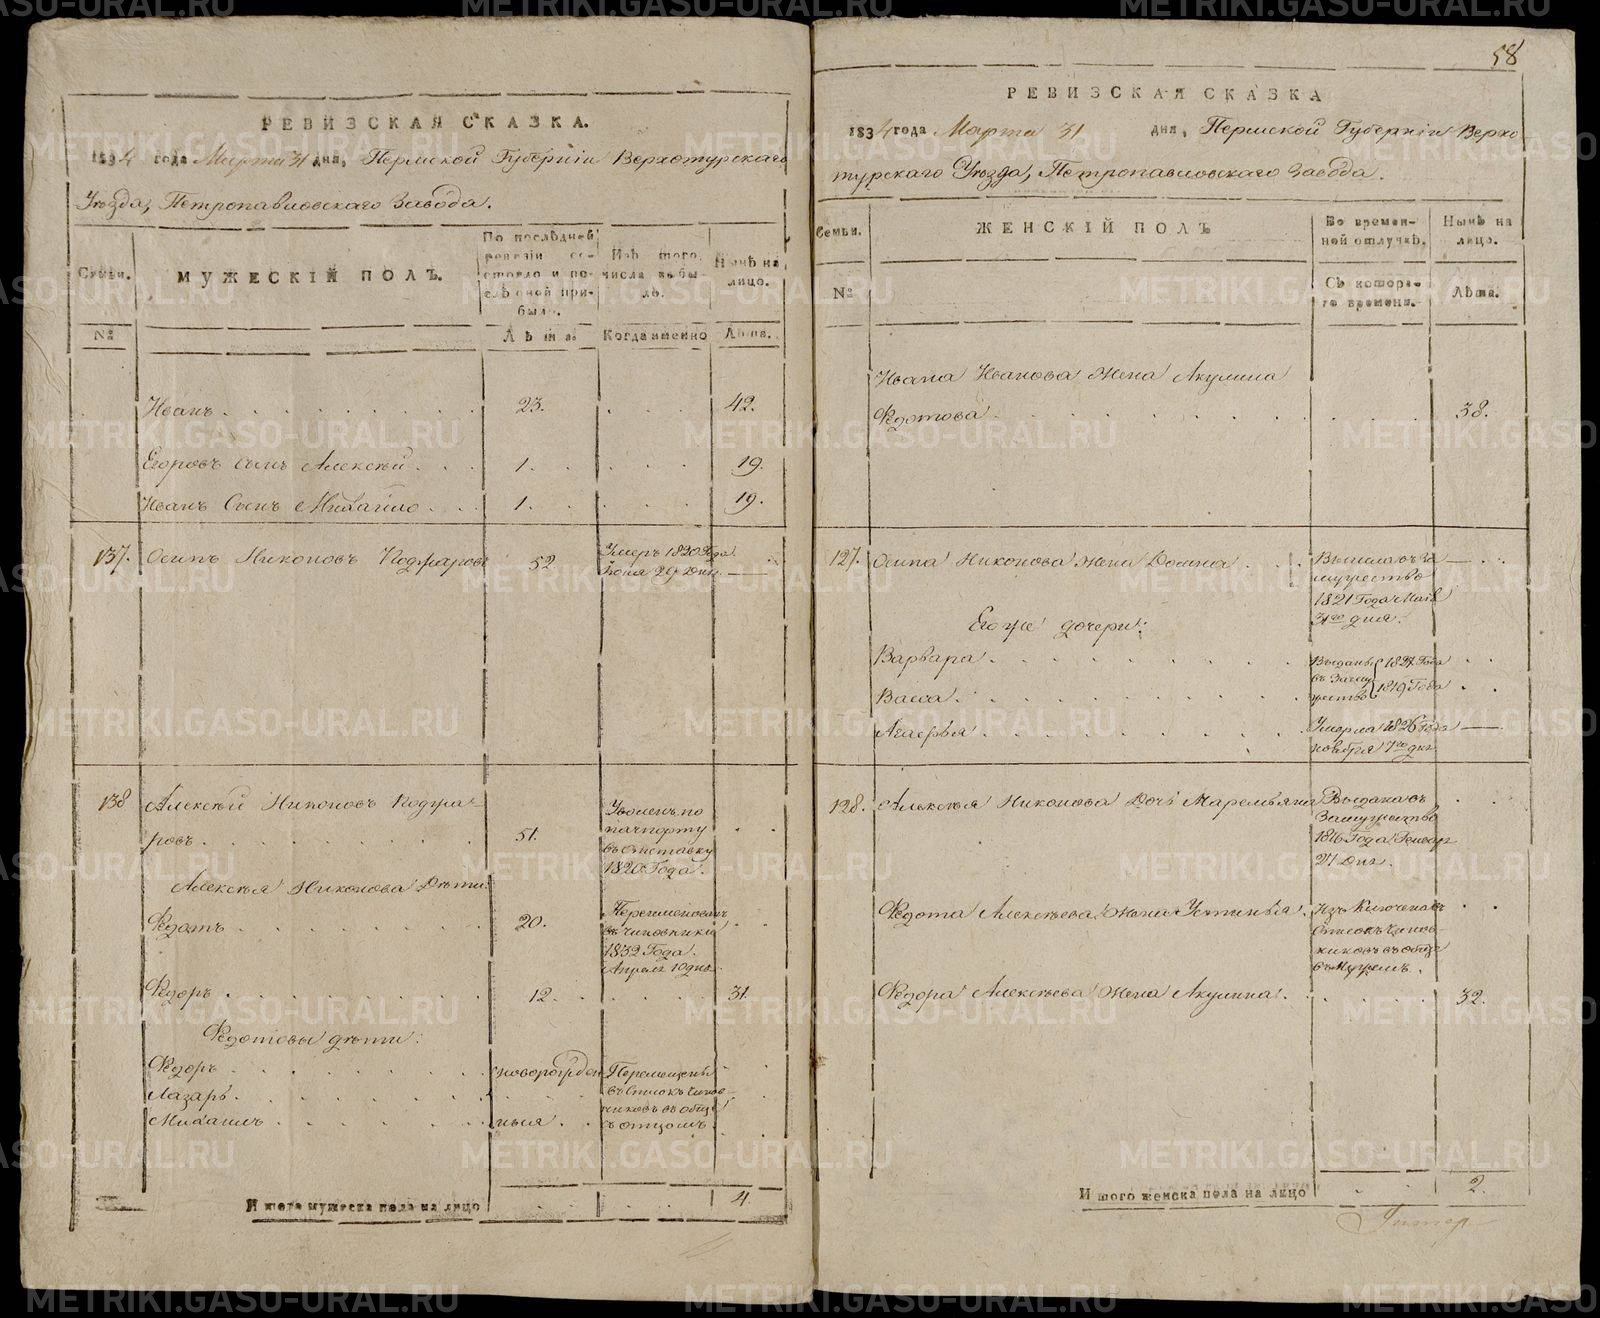 РЕВИЗСКАЯ СКАЗКА.
1834 года Марта 31 дня, Пермской Губерніи Верхотурскаго
Уѣзда, Петропавловскаго Завода.
Семьи.
МУЖЕСКІЙ ПОЛЪ.
По послѣдней
ревизіи со-
стояло и по-
слѣ оной при-
было.
Изъ того
числа выбы-
ло.
Нынѣ на
лицо.
№
Лѣта.
Когда именно
Лѣта.
Иванъ 23. 42.
Егоровъ Сынъ Алексѣй 1. 19.
Иванъ Сынъ Михайло 1. 19.
137. Осипъ Никоновъ Коджаровъ 52
Умеръ 1820 Года
Іюня 29 Дня.
138 Алексѣй Никоновъ Коджа-
ровъ 51.
Уволенъ по
пачпорту
въ отставку
1820 Года.
Алексѣя Никонова Дѣти:
Ѳедотъ 20.
Переименованъ
въ чиновники
1832 Года.
Апрѣля 10 дня.
Ѳедоръ 12. 31.
Ѳедотовы дѣти:
Ѳедоръ
Лазарь
Михаилъ
новорожден
ныя
Перемещены
въ Списокъ Чинов-
никовъ въ общѣ
съ отцомъ.
И того мужеска пола на лицо 4.
58
РЕВИЗСКАЯ СКАЗКА
1834 года Марта 31 дня, Пермской Губерніи Верхо
турскаго Уѣзда, Петропавловскаго Завода.
Семьи.
ЖЕНСКІЙ ПОЛЪ
Во времен-
ной отлучкѣ.
Нынѣ на
лицо.
№
Съ котора-
го времени.
Лѣта.
Ивана Иванова Жена Акулина
Ѳедотова 38.
127. Осипа Никонова Жена Домна
Вышла въ За
мужество
1821 Года Маія
31го дня.
Его же дочери:
Варвара
Васса
Выданы
въ Заму
жество
1827 Года
1819 Года
Агаѳья
Умерла 1826 Года
ноября 7го дня
128. Алексѣя Никонова Дочь Маремьяна
Выдана въ
Замужество
1816 Года Генваря
27 Дня.
Ѳедота Алексѣева Жена Устинья
въ
Списокъ Чинов-
никовъ въ общѣ
съ Мужемъ.
Ѳедора Алексѣева Жена Акулина 32.
И того женска пола на лицо 2.
METRIKI.GASO-URAL.RU